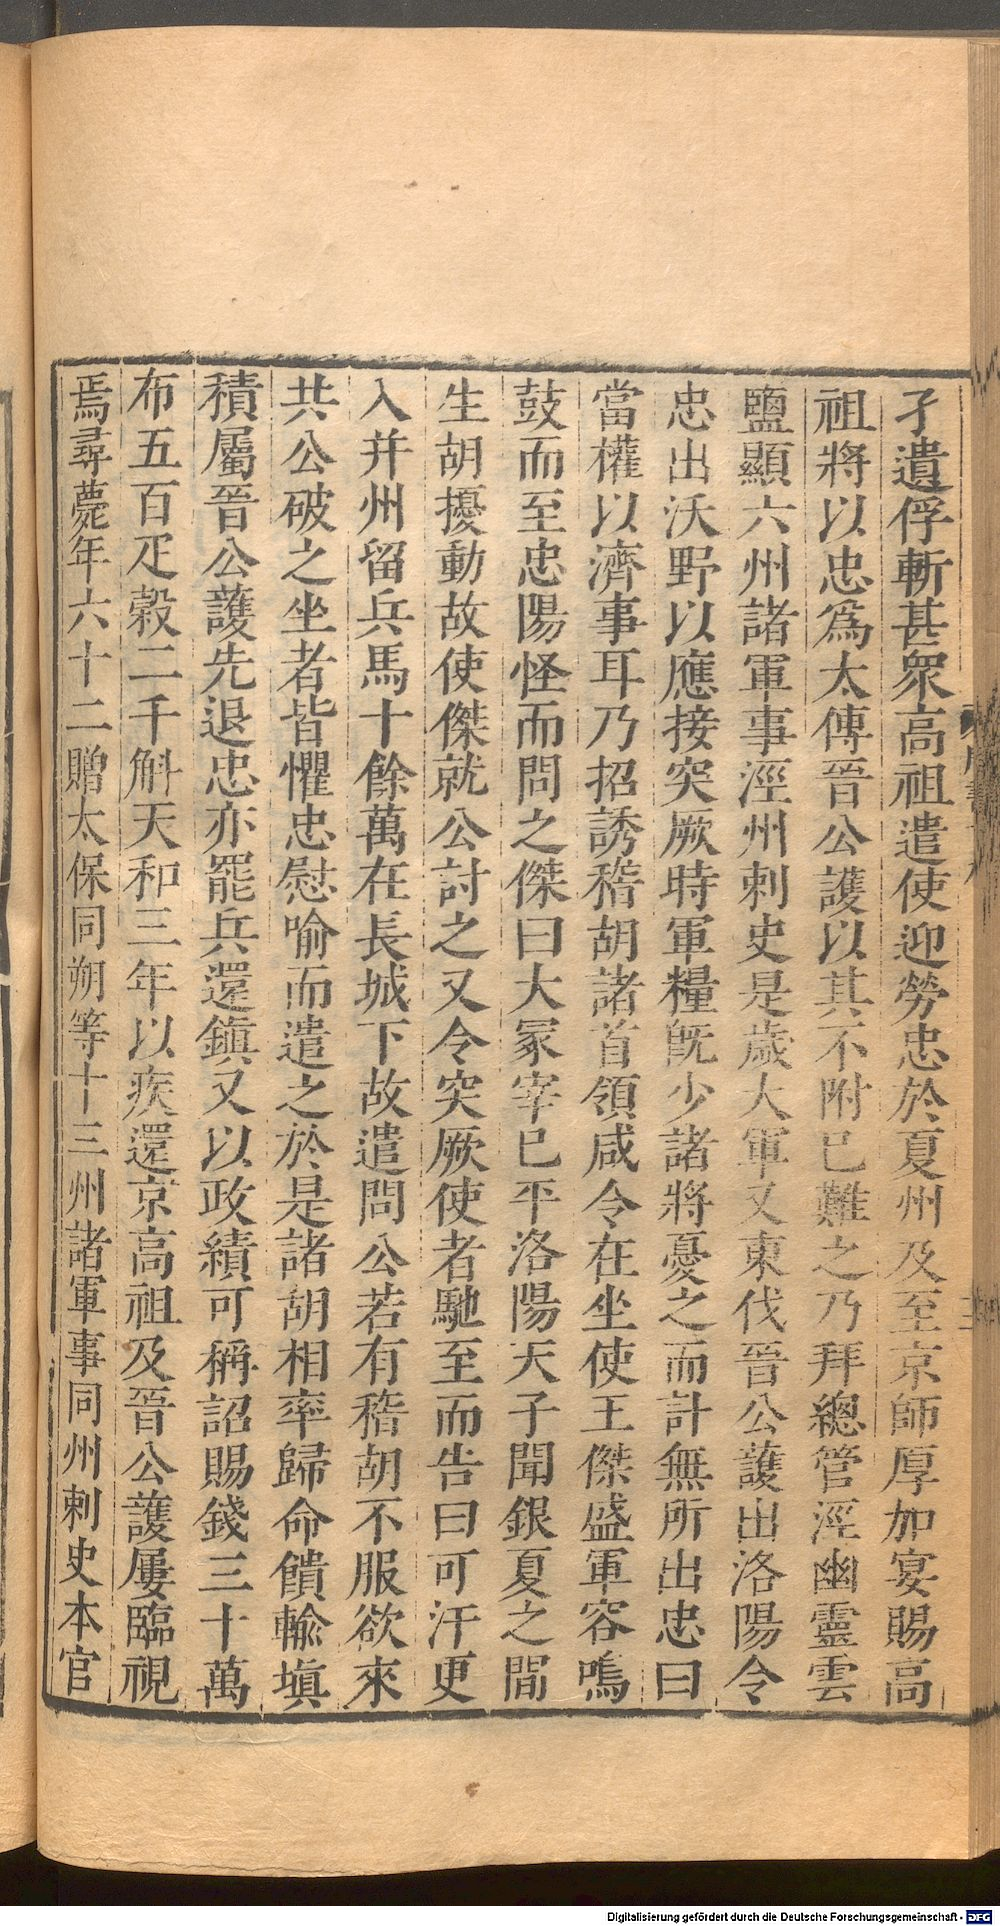 孑遺俘斬甚衆高祖遣使迎勞忠於夏州及至京師厚加宴賜高
祖將以忠爲太傳晉公護以其不附已難之乃拜總管涇幽靈雲
鹽顯六州諸軍事涇州刺史是歲大軍又東伐晉公護出洛陽令
忠出沃野以應接突厥時軍糧旣少諸將憂之而計無所出忠曰
當權以濟事耳乃招誘稽胡諸首領咸令在坐使王傑盛軍容鳴
鼓而至忠陽怪而問之傑曰大冢宰已平洛陽天子聞銀夏之閒
生胡擾動故使傑就公討之又令突厥使者馳至而告曰可汗更
入并州留兵馬十餘萬在長城下故遣問公若有稽胡不服欲來
共公破之坐者皆懼忠慰喻而遣之於是諸胡相率歸命饋輸塡
積屬晉公護先退忠亦罷兵還鎭又以政績可稱詔賜錢三十萬
布五百疋穀二千斛天和三年以疾還京高祖及晉公護屢臨視
焉尋薨年六十二贈太保同朔等十三州諸軍事同州刺史本官
Digitalisierung gefördert durch die Deutsche Forschungsgemeinschaft - DFG